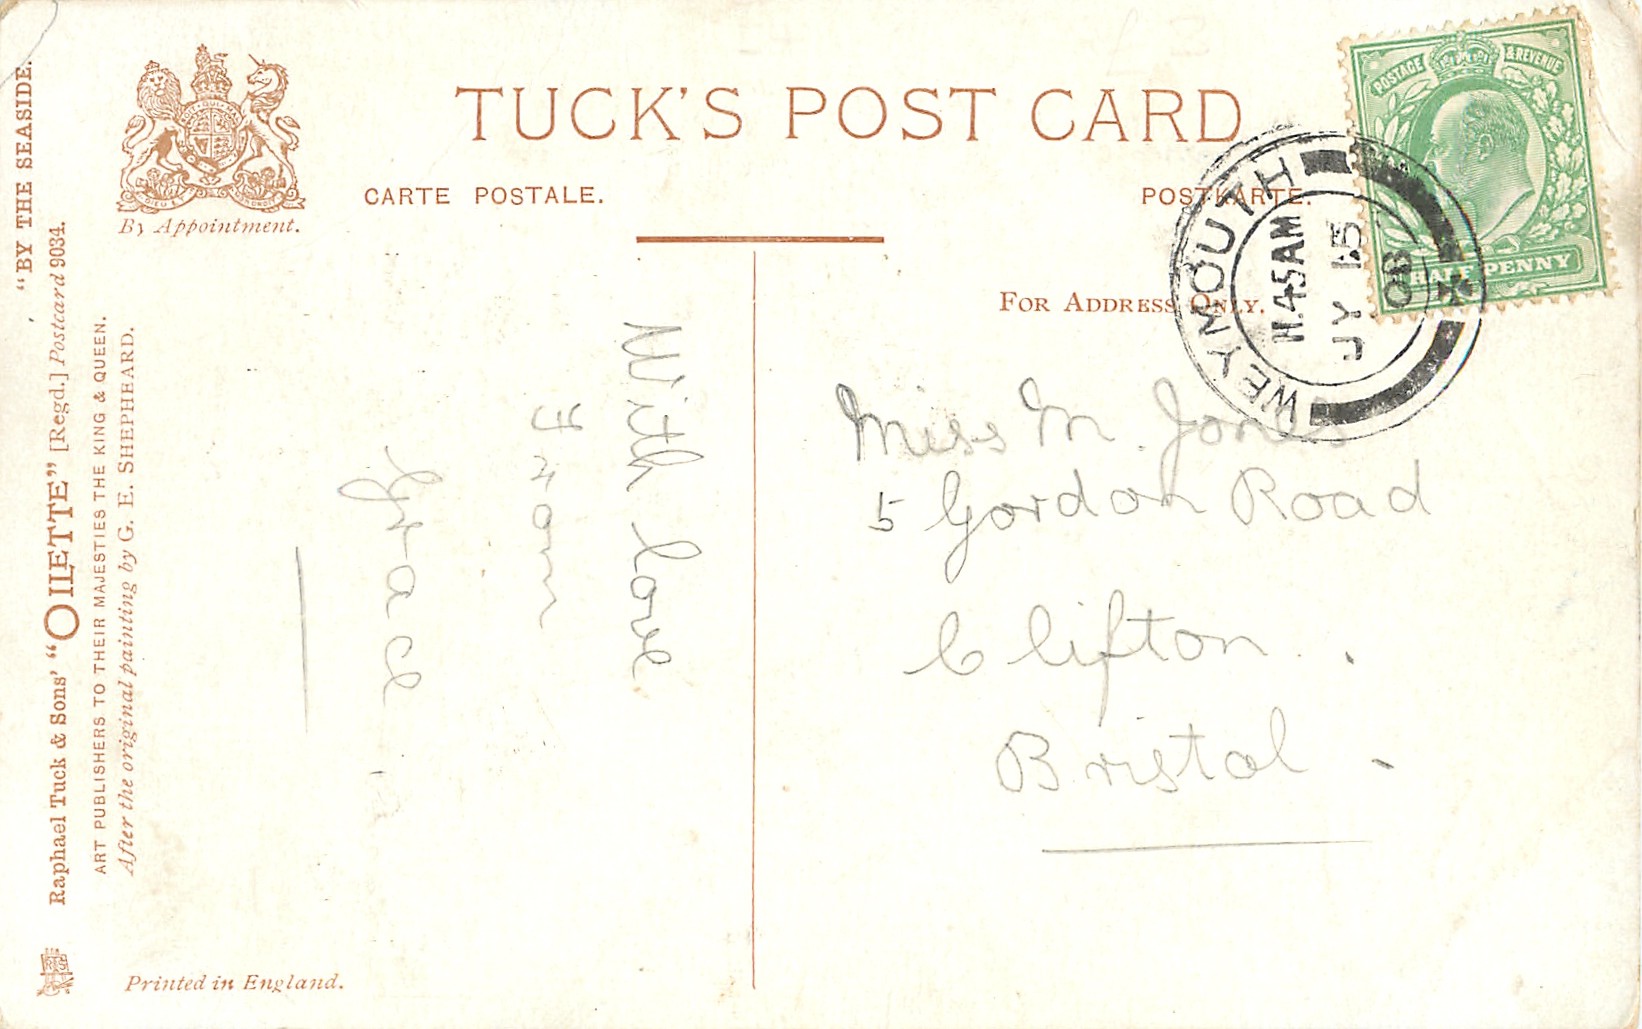 "BY THE SEASIDE.
Raphael Tuck & Sons' "OILETTE" [Regd.] Postcard 9034.
ART PUBLISHERS TO THEIR MAJESTIES THE KING & QUEEN.
After the original painting by G. E. SHEPHEARD.
By Appointment.
TUCK'S POST CARD
CARTE POSTALE.
POSTKARTE.
For Address Only.
POSTAGE & REVENUE
HALF PENNY
WEYMOUTH
11.45AM
JY 15
08
With love
From
Grace.
Miss M. Jones
5 Gordon Road
Clifton.
Bristol.
Printed in England.